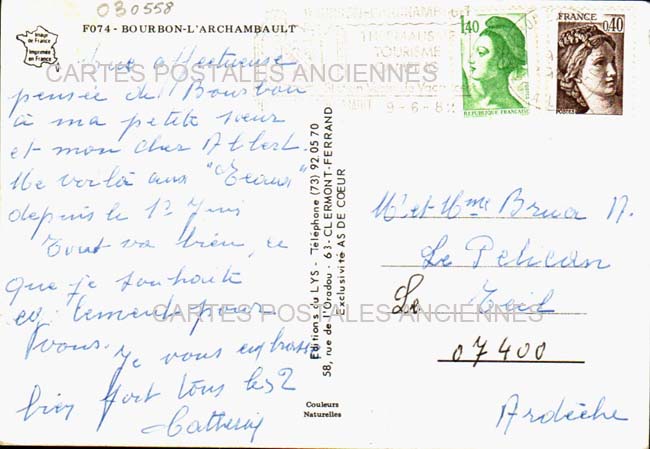 030558
F074 - BOURBON-L'ARCHAMBAULT
Image de France
Imprimée en France
CARTES POSTALES ANCIENNES
Une affectueuse
pensée de Bourbon
à ma petite sœur
et mon cher Albert.
Me voilà aux
depuis le 1er Juin
Tout va bien, ce
que je souhaite
également pour
vous. Je vous embrasse
bien fort tous les 2
Catherine
Editions du LYS - Téléphone (73) 92.05 70
58, rue de l'Oradou - 63 - CLERMONT-FERRAND
Exclusivité AS DE COEUR
Couleurs
Naturelles
THERMALISME
TOURISME
9-6-82
1,40
REPUBLIQUE FRANÇAISE
FRANCE
0,40
POSTES
Mr et Mme Brua A.
Le Pelican
Le Teil
07400
Ardèche
CARTES POSTALES ANCIENNES